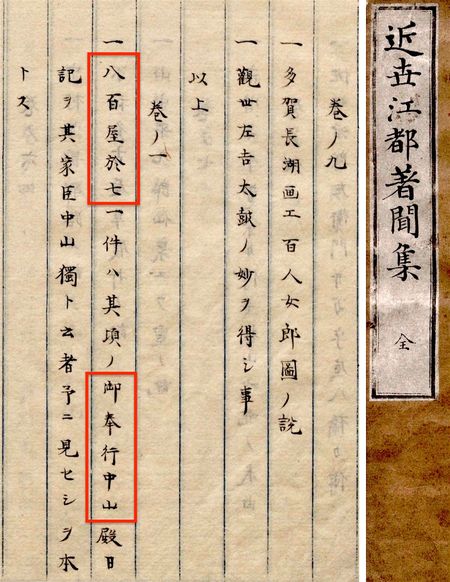 近世江都著聞集
全
巻ノ九
一多賀長湖画工百人女郎圖ノ説
一觀世左吉太鼓ノ妙ヲ得シ事
以上
巻ノ一
一八百屋於七一件ハ其頃ノ御奉行中山殿日
記ヲ其家臣中山獨卜云者予ニ見セシヲ本
トス